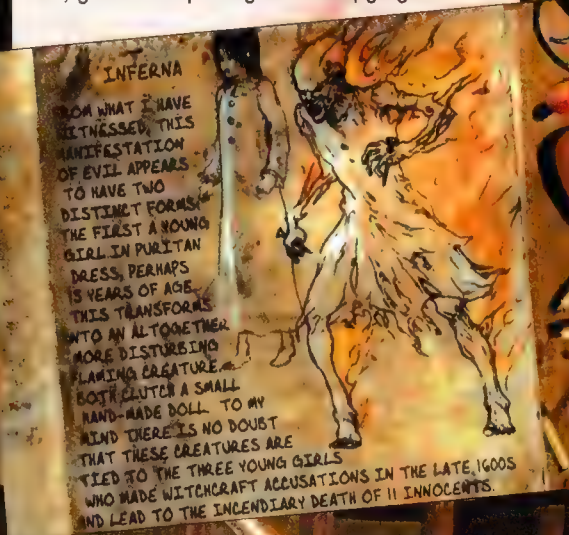 INFERNA
FROM WHAT I HAVE
WITNESSED, THIS
MANIFESTATION
OF EVIL APPEARS
TO HAVE TWO
DISTINCT FORMS:
THE FIRST A YOUNG
GIRL IN PURITAN
DRESS, PERHAPS
YEARS OF AGE.
THIS TRANSFORMS
INTO AN ALTOGETHER
MORE DISTURBING
FLAMING CREATURE.
BOTH CLUTCH A SMALL
HAND-MADE DOLL. TO MY
MIND THERE IS NO DOUBT
THAT THESE CREATURES ARE
TIED TO THE THREE YOUNG GIRLS
WHO MADE WITCHCRAFT ACCUSATIONS IN THE LATE 1600S
AND LEAD TO THE INCENDIARY DEATH OF 11 INNOCENTS.